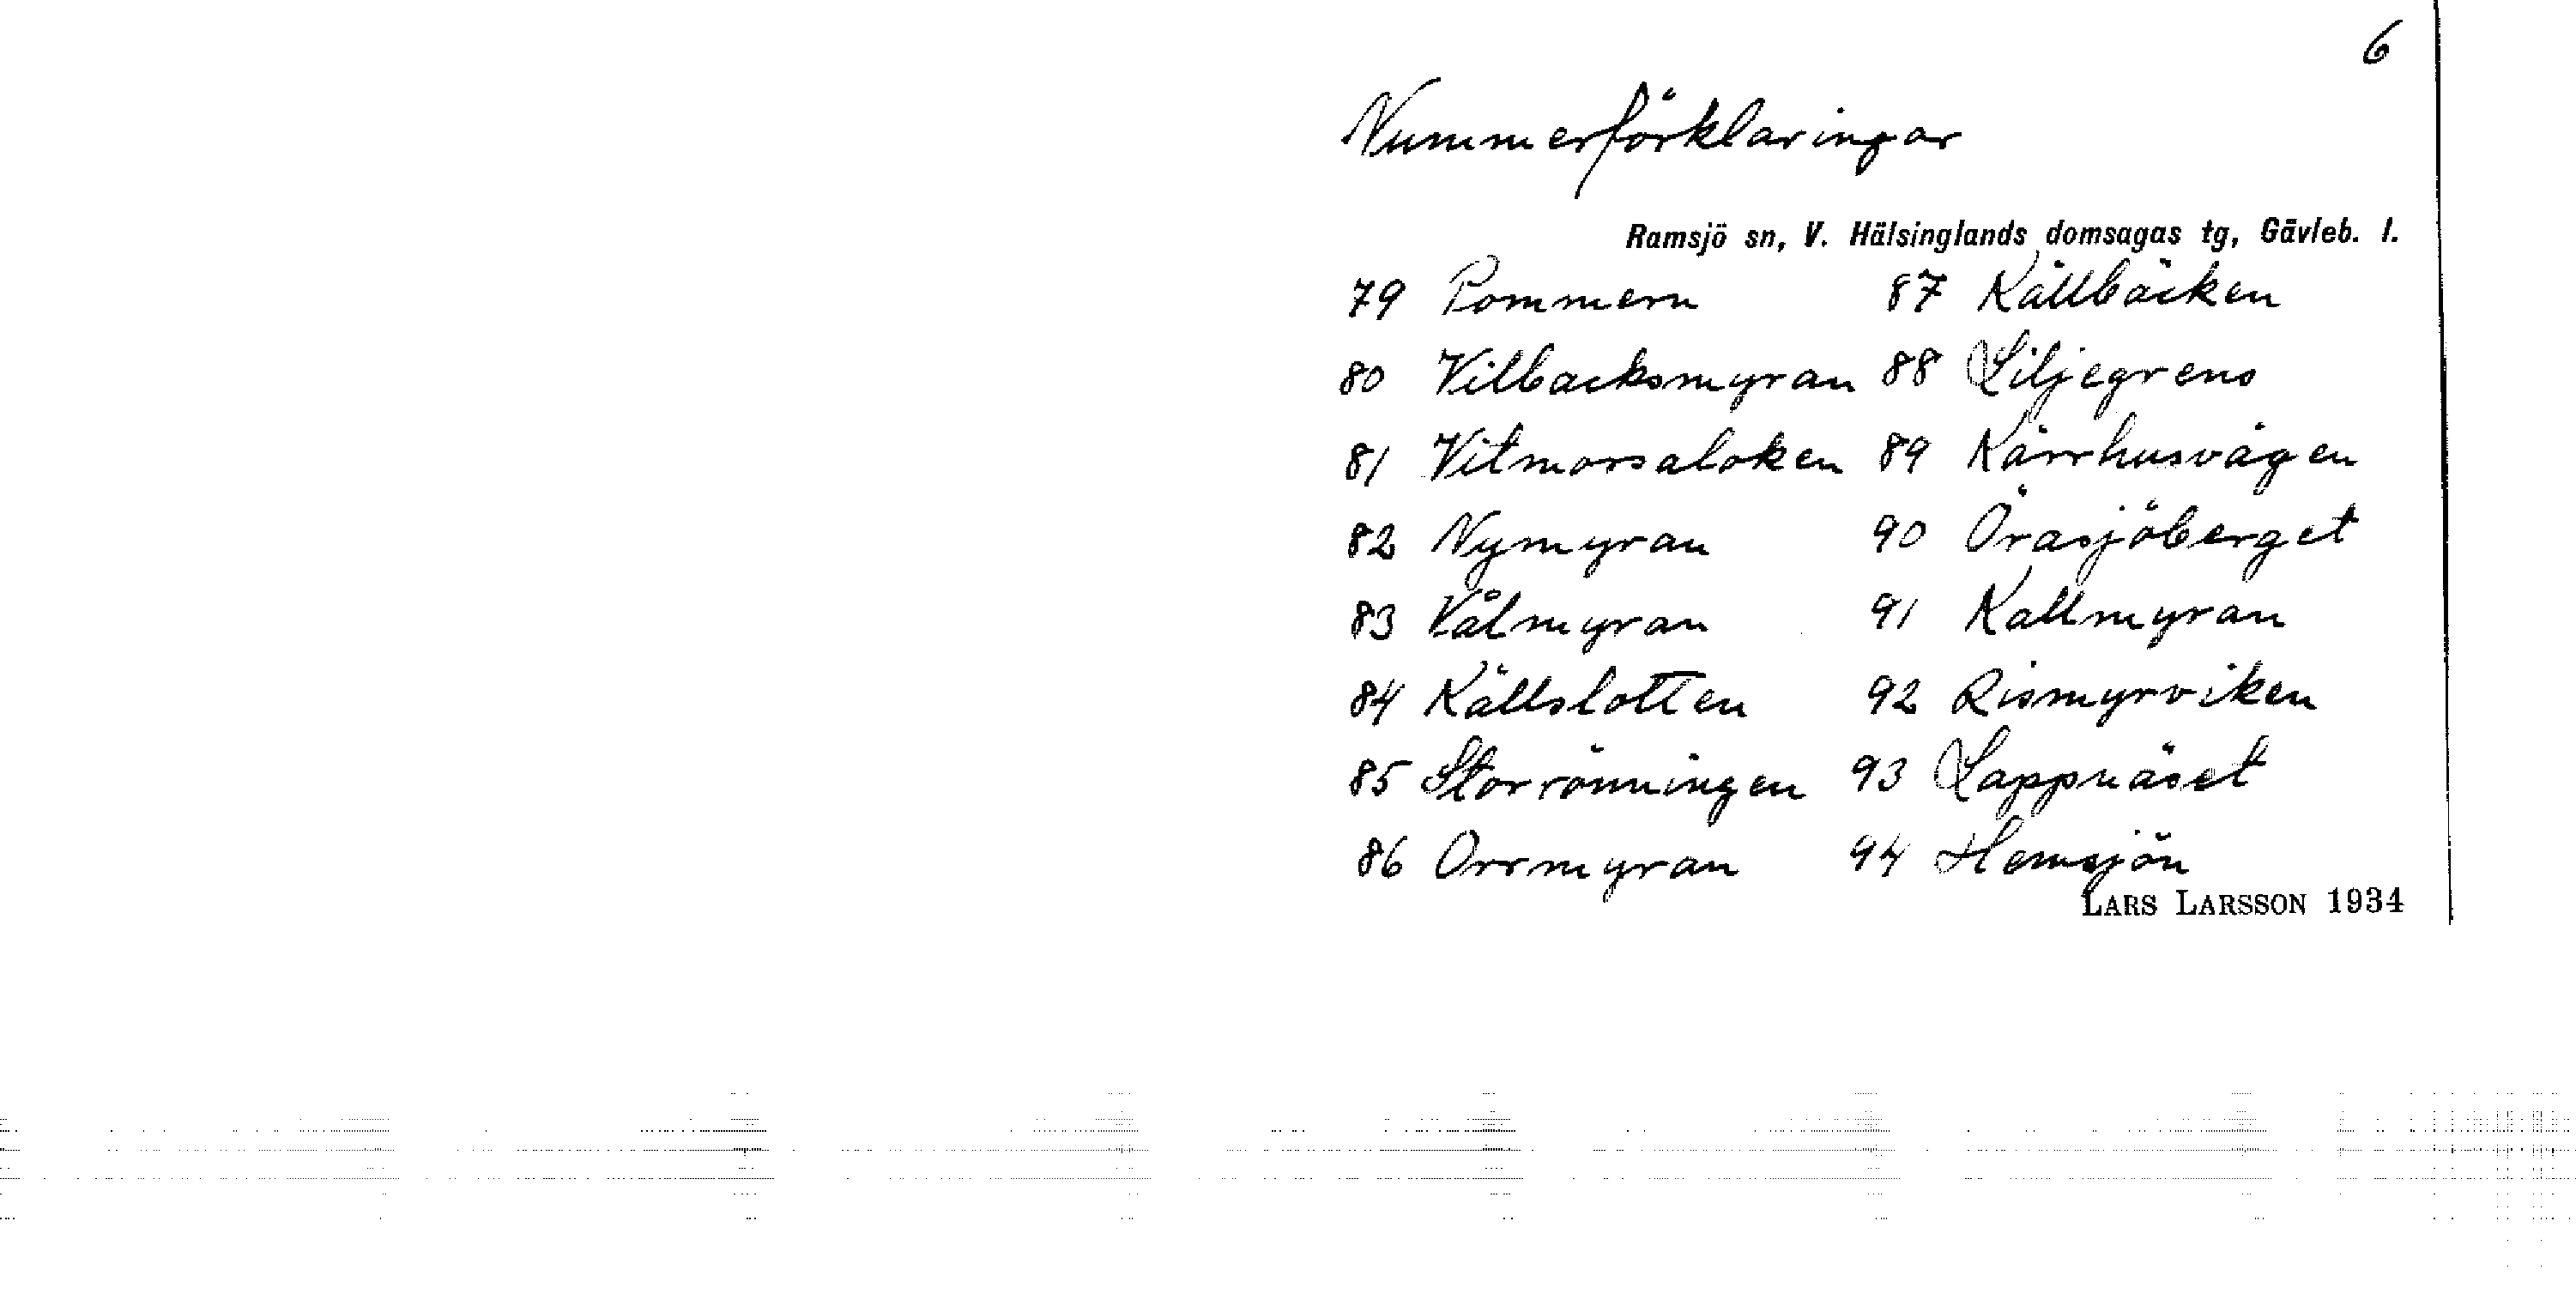 6
Nummerförklaringar
Ramsjö sn, V. Hälsinglands domsagas tg, Gävleb. l.
79 Pommern 87 Källbäcken
80 Vilbacksmyran 88 Liljegrens
81 Vitmorsaloken 89 Kärrhusvägen
82 Nymyran 90 Öråsjöberget
83 Vålmyran 91 Kallmyran
84 Källslotten 92 Rismyrviken
85 Storrönningen 93 Lappnäset
86 Orrmyran 94 Hemsjön
LARS LARSSON 1934